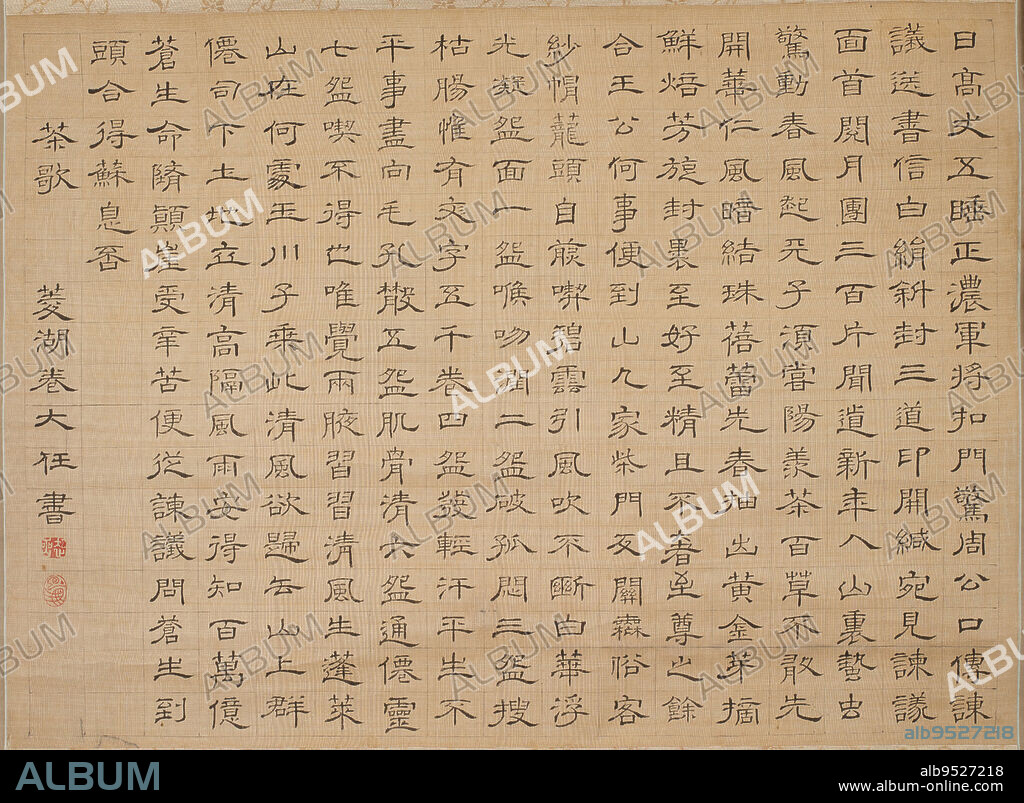 日高丈五睡正濃軍將扣門驚周公口傳諫
議送書信白絹斜封三道印開緘宛見諫議
面首閱月團三百片聞道新年入山裏蟄虫
驚動春風起天子須嘗陽羨茶百草不敢先
開華仁風暗結珠蓓蕾先春抽出黃金芽摘
鮮焙芳旋封裹至好至精且不奢至尊之餘
合王公何事便到山人家柴門反關無俗客
紗帽籠頭自煎喫碧雲引風吹不斷白華浮
光凝盌面一盌喉吻潤二盌破孤悶三盌搜
枯腸惟有文字五千卷四盌發輕汗平生不
平事盡向毛孔散五盌肌骨清六盌通僊靈
七盌喫不得也唯覺兩腋習習清風生蓬萊
山在何處玉川子乘此清風欲歸去山上群
僊司下土地立清高隔風雨安得知百萬億
蒼生命墮顛崖受辛苦便從諫議問蒼生到
頭合得蘇息否
茶歌 菱湖卷大任書
ALBUM
alb9527218
ALBUM
alb9527218
www.album-online.com